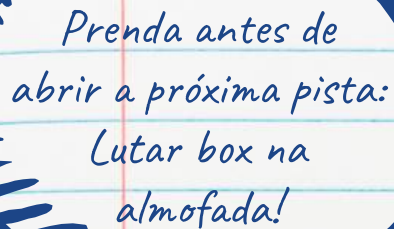 Prenda antes de
abrir a próxima pista:
Lutar box na
almofada!